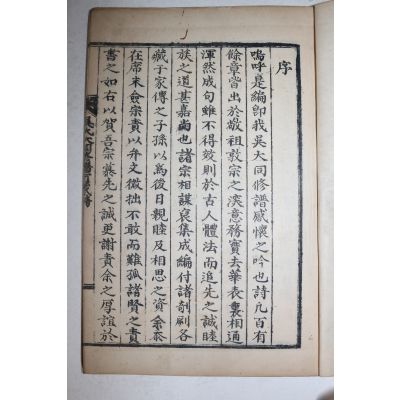 序
嗚呼是編卽我吳大同修譜感懷之吟也詩凡百有
餘章皆出於敬祖敦宗之深意務實去華表裏相通
渾然成句雖不得效則於古人體法而追先之誠睦
族之道甚嘉尙也諸宗相謀裒集成編付諸剞劂各
藏于家傳之子孫以爲後日親睦及相思之資余忝
在席末僉宗責以弁文微拙不敢而難孤諸賢之責
書之如右以賀吾宗慕先之誠更謝責余之厚誼於